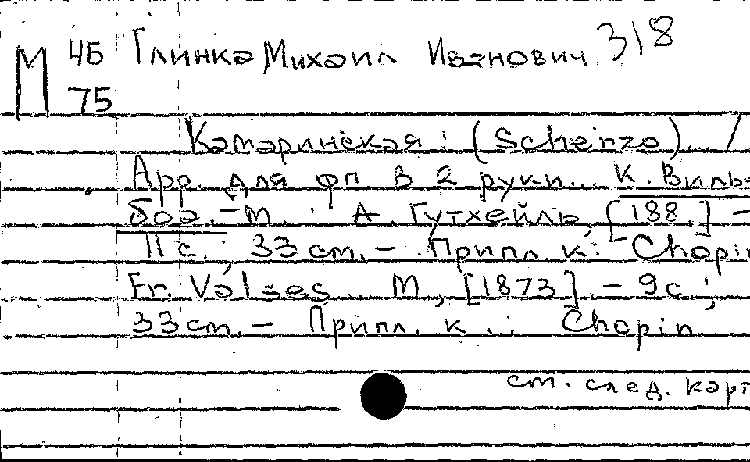 М 4Б Глинка Михаил Иванович 318
75
Камаринская: (Scherzo). /
Арр. для фп в 2 руки.. К. Виль-
боа. - М. : А. Гутхейль, [188.] -
11 с.; 33 cm. - Припл. к: Chopin
Fr. Valses. М, [1873]. - 9с;
33 cm. - Припл. к.: Chopin,
см. след. карт